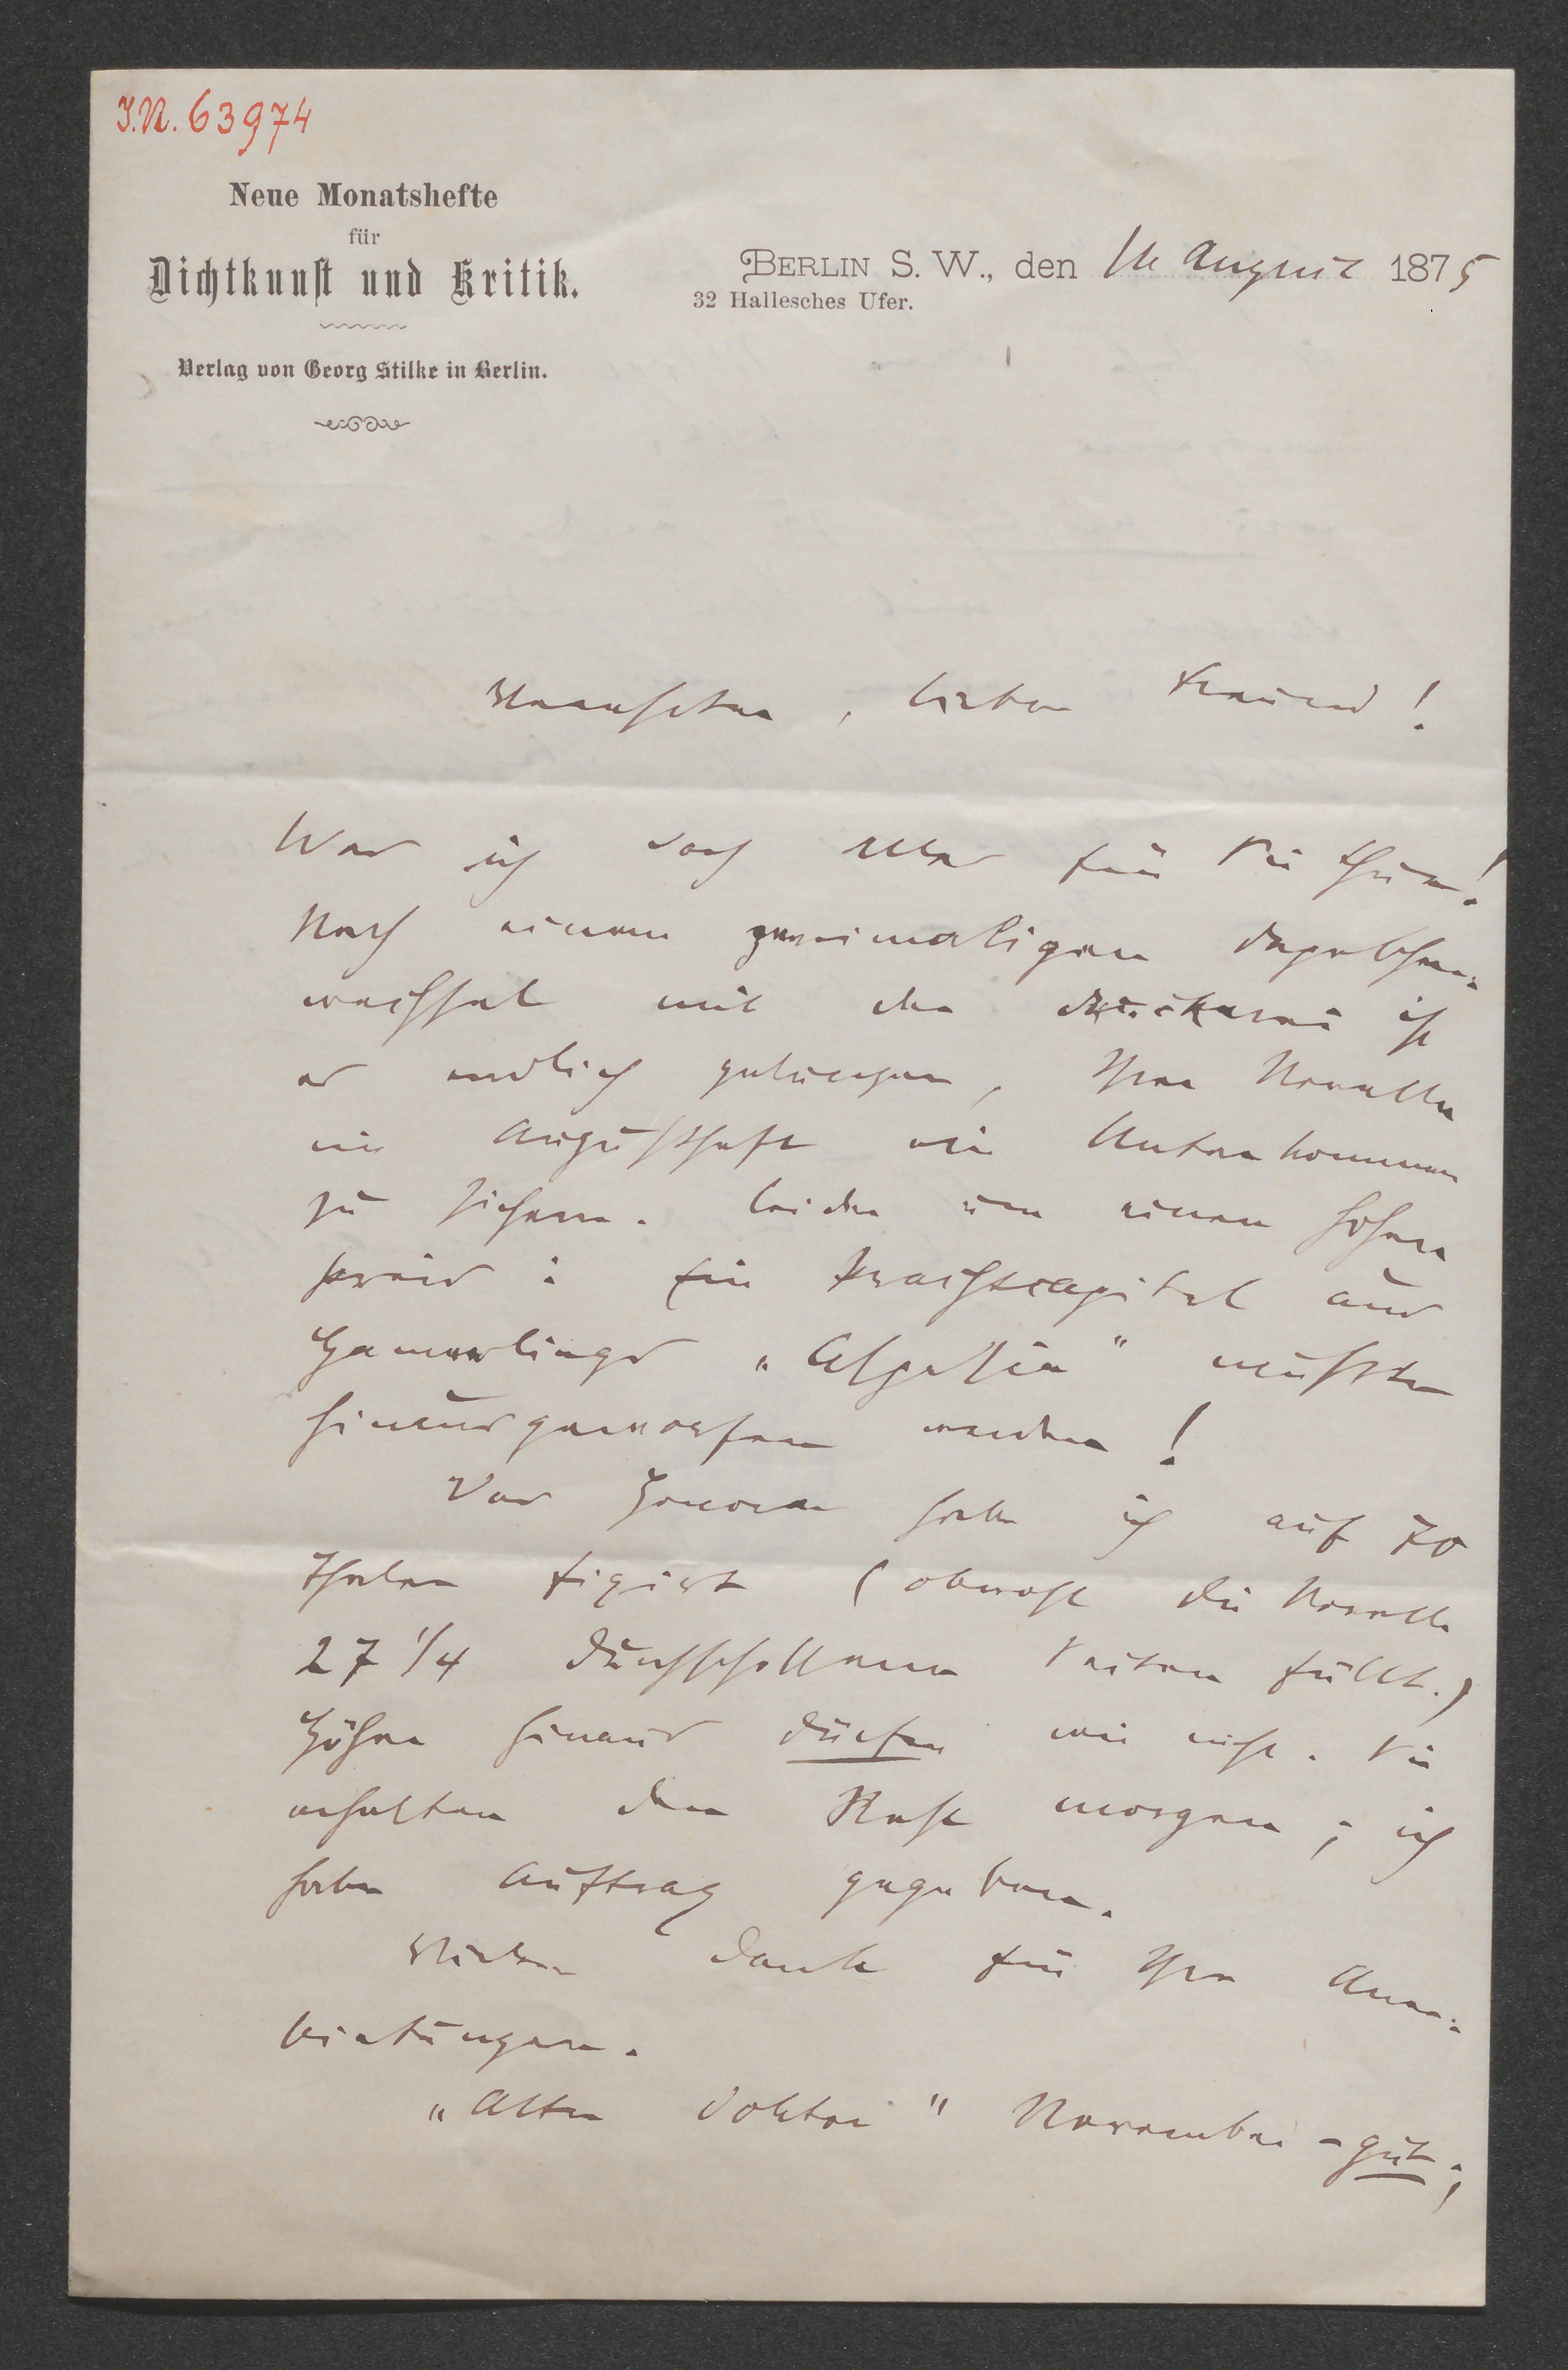 J.N. 63974
Neue Monatshefte
für
Dichtkunst und Kritik.
Verlag von Georg Stilke in Berlin.
BERLIN S. W., den 16 August 1875
32 Hallesches Ufer.
Verehrter, lieber Freund!
Was ich doch Alles für Sie thue!
Nach einem zweimaligen Depeschen-
wechsel mit der Druckerei ist
es endlich gelungen, Ihrer Novelle
im Augustheft ein Unterkommen
zu sichern. Leider um einen hohen
Preis: Ein Prachtcapitel aus
Hamerlings „Aspasia" mußte
hinausgeworfen werden!
Das Honorar habe ich auf 70
Thaler fixirt (obwohl die Novelle
27 1/4 Seiten füllt.)
Höher hinaus dürfen wir nicht. Sie
erhalten den Rest morgen; ich
habe Auftrag gegeben.
Vielen Dank für Ihre Aner-
bietungen.
„Alter Doktor" November - gut;